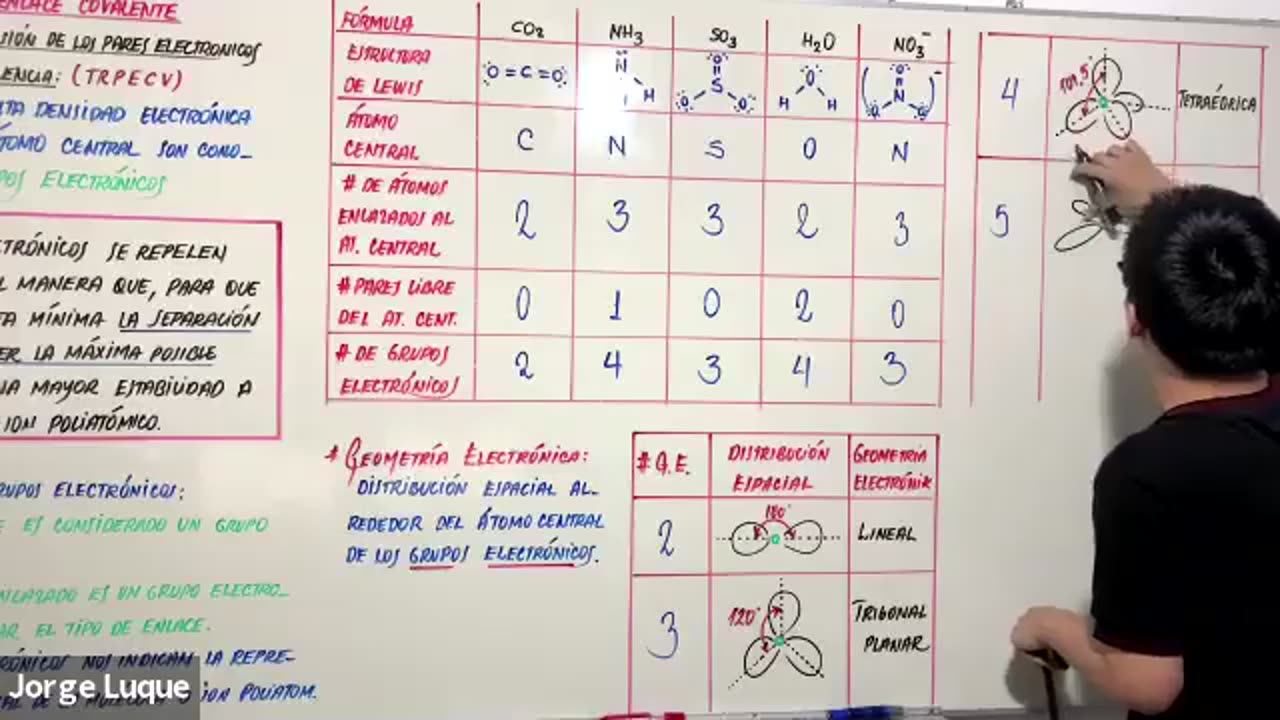 ENLACE COVALENTE
SIÓN DE LOS PARES ELECTRONICOS
LENCIA: (TRPECV)
TA DENSIDAD ELECTRÓNICA
ÁTOMO CENTRAL SON CONO_
POS ELECTRÓNICOS
CTRÓNICOS SE REPELEN
L MANERA QUE, PARA QUE
TA MÍNIMA LA SEPARACIÓN
ER LA MÁXIMA POSIBLE
NA MAYOR ESTABILIDAD A
ION POLIATÓMICO.
RUPOS ELECTRÓNICOS:
E ES CONSIDERADO UN GRUPO
NLAZADO ES UN GRUPO ELECTRO_
AR EL TIPO DE ENLACE.
RÓNICOS NOS INDICAN LA REPRE-
ION POLIATOM.
Jorge Luque
FÓRMULA CO2 NH3 SO3 H2O NO3⁻
ESTRUCTURA
DE LEWIS
O=C=O
N H
O S O O
O H H
(O N O O)⁻
ÁTOMO
CENTRAL C N S O N
# DE ÁTOMOS
ENLAZADOS AL
AT. CENTRAL 2 3 3 2 3
# PARES LIBRE
DEL AT. CENT. 0 1 0 2 0
# DE GRUPOS
ELECTRÓNICOS 2 4 3 4 3
* GEOMETRÍA ELECTRÓNICA:
DISTRIBUCIÓN ESPACIAL AL-
REDEDOR DEL ÁTOMO CENTRAL
DE LOS GRUPOS ELECTRÓNICOS.
# G.E. DISTRIBUCIÓN
ESPACIAL GEOMETRÍA
ELECTRÓNIK
2 180° LINEAL
3 120° TRIGONAL
PLANAR
4 109.5° TETRAÉDRICA
5